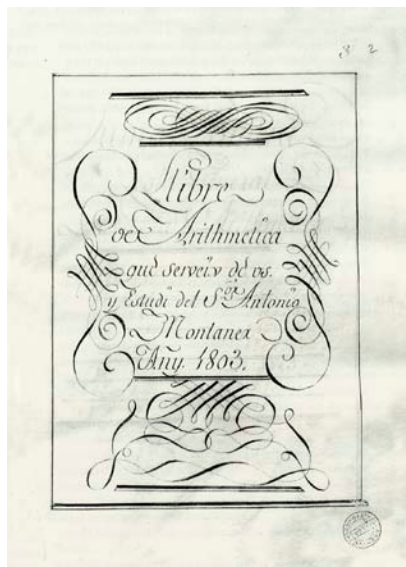 2
Llibre
de Arithmetica
que serveix de us.
y Estudi del S.or Antonio
Montaner
Añy. 1803.